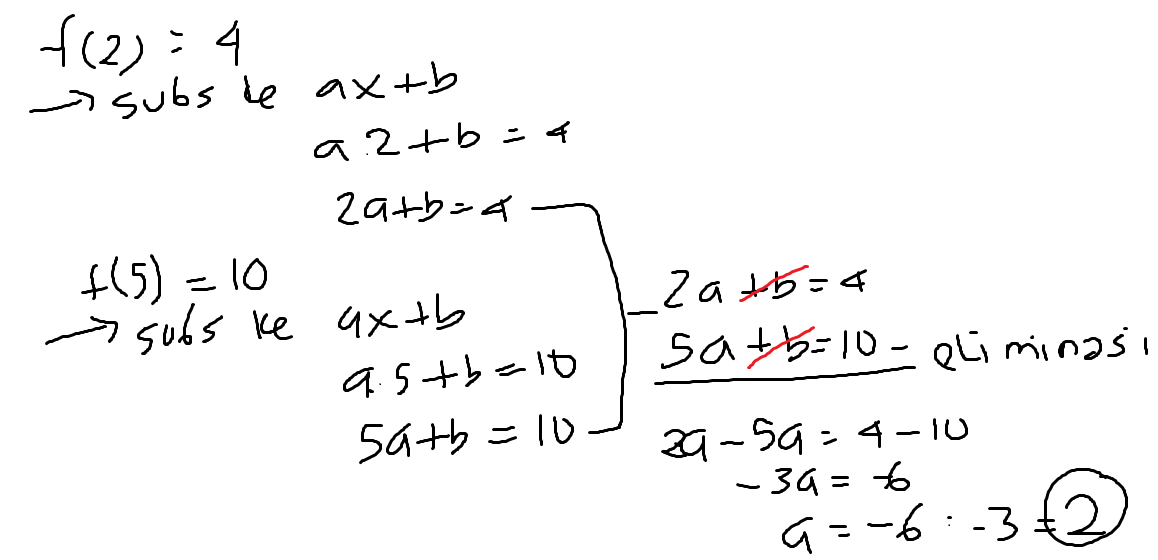 f(2) = 4
→ subs ke ax+b
a.2+b = 4
2a+b=4
f(5) = 10
→ subs ke ax+b
a.5+b=10
5a+b = 10
2a+b=4
5a+b=10 - eliminasi
2a-5a=4-10
-3a=-6
a=-6:-3=2